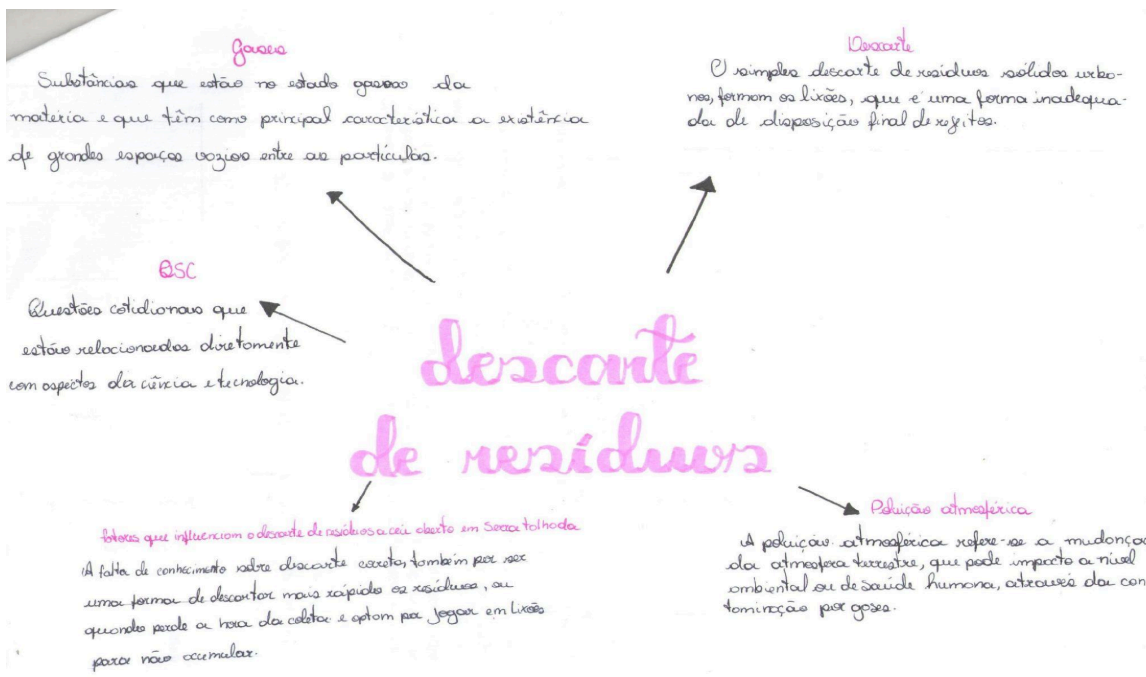 Gases
Substâncias que estão no estado gasoso da
matéria e que têm como principal característica a existência
de grandes espaços vazios entre as partículas.
Descarte
O simples descarte de resíduos sólidos urba-
nos, formam os lixões, que é uma forma inadequa-
da de disposição final de rejeitos.
QSC
Questões cotidianas que
estão relacionadas diretamente
com aspectos da ciência e tecnologia.
descarte
de resíduos
fatores que influenciam o descarte de resíduos a céu aberto em Serra talhada
A falta de conhecimento sobre descarte correto, também por ser
uma forma de descartar mais rápido os resíduos, ou
quando perde a hora da coleta e optam por jogar em lixões
para não acumular.
Poluição atmosférica
A poluição atmosférica refere-se a mudança
da atmosfera terrestre, que pode impacto a nível
ambiental ou de saúde humana, através da con
taminação por gases.